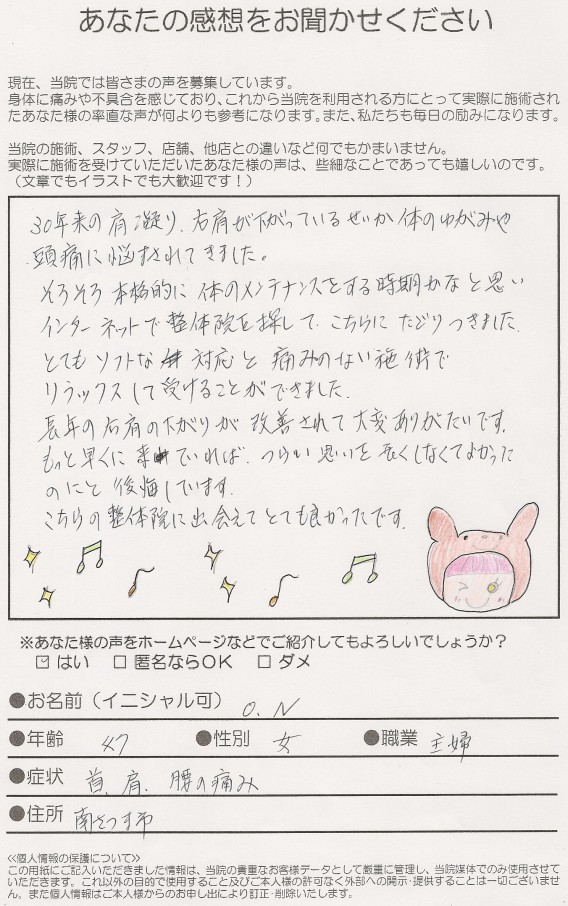 あなたの感想をお聞かせください
現在、当院では皆さまの声を募集しています。
身体に痛みや不具合を感じており、これから当院を利用される方にとって実際に施術され
たあなた様の率直な声が何よりも参考になります。また、私たちも毎日の励みになります。
当院の施術、スタッフ、店舗、他店との違いなど何でもかまいません。
実際に施術を受けていただいたあなた様の声は、些細なことであっても嬉しいのです。
（文章でもイラストでも大歓迎です！）
30年来の肩凝り、右肩が下がっているせいか体のゆがみや
頭痛に悩まされてきました。
そろそろ本格的に体のメンテナンスをする時期かなと思い
インターネットで整体院を探して、こちらにたどりつきました。
とてもソフトな対応と痛みのない施術で
リラックスして受けることができました。
長年の右肩の下がりが改善されて大変ありがたいです。
もっと早くに来ていれば、つらい思いを長くしなくてよかった
のにと後悔しています。
こちらの整体院に出会えてとても良かったです。
※あなた様の声をホームページなどでご紹介してもよろしいでしょうか？
☑ はい □ 匿名ならOK □ ダメ
●お名前（イニシャル可） O. N
●年齢 47 ●性別 女 ●職業 主婦
●症状 首、肩、腰の痛み
●住所 南さつま市
≪個人情報の保護について≫
この用紙にご記入いただきました情報は、当院の貴重なお客様データとして厳重に管理し、当院媒体でのみ使用させて
いただきます。これ以外の目的で使用すること及びご本人様の許可なく外部への開示・提供することは一切ございませ
ん。また個人情報はご本人様からのお申し出により訂正・削除いたします。